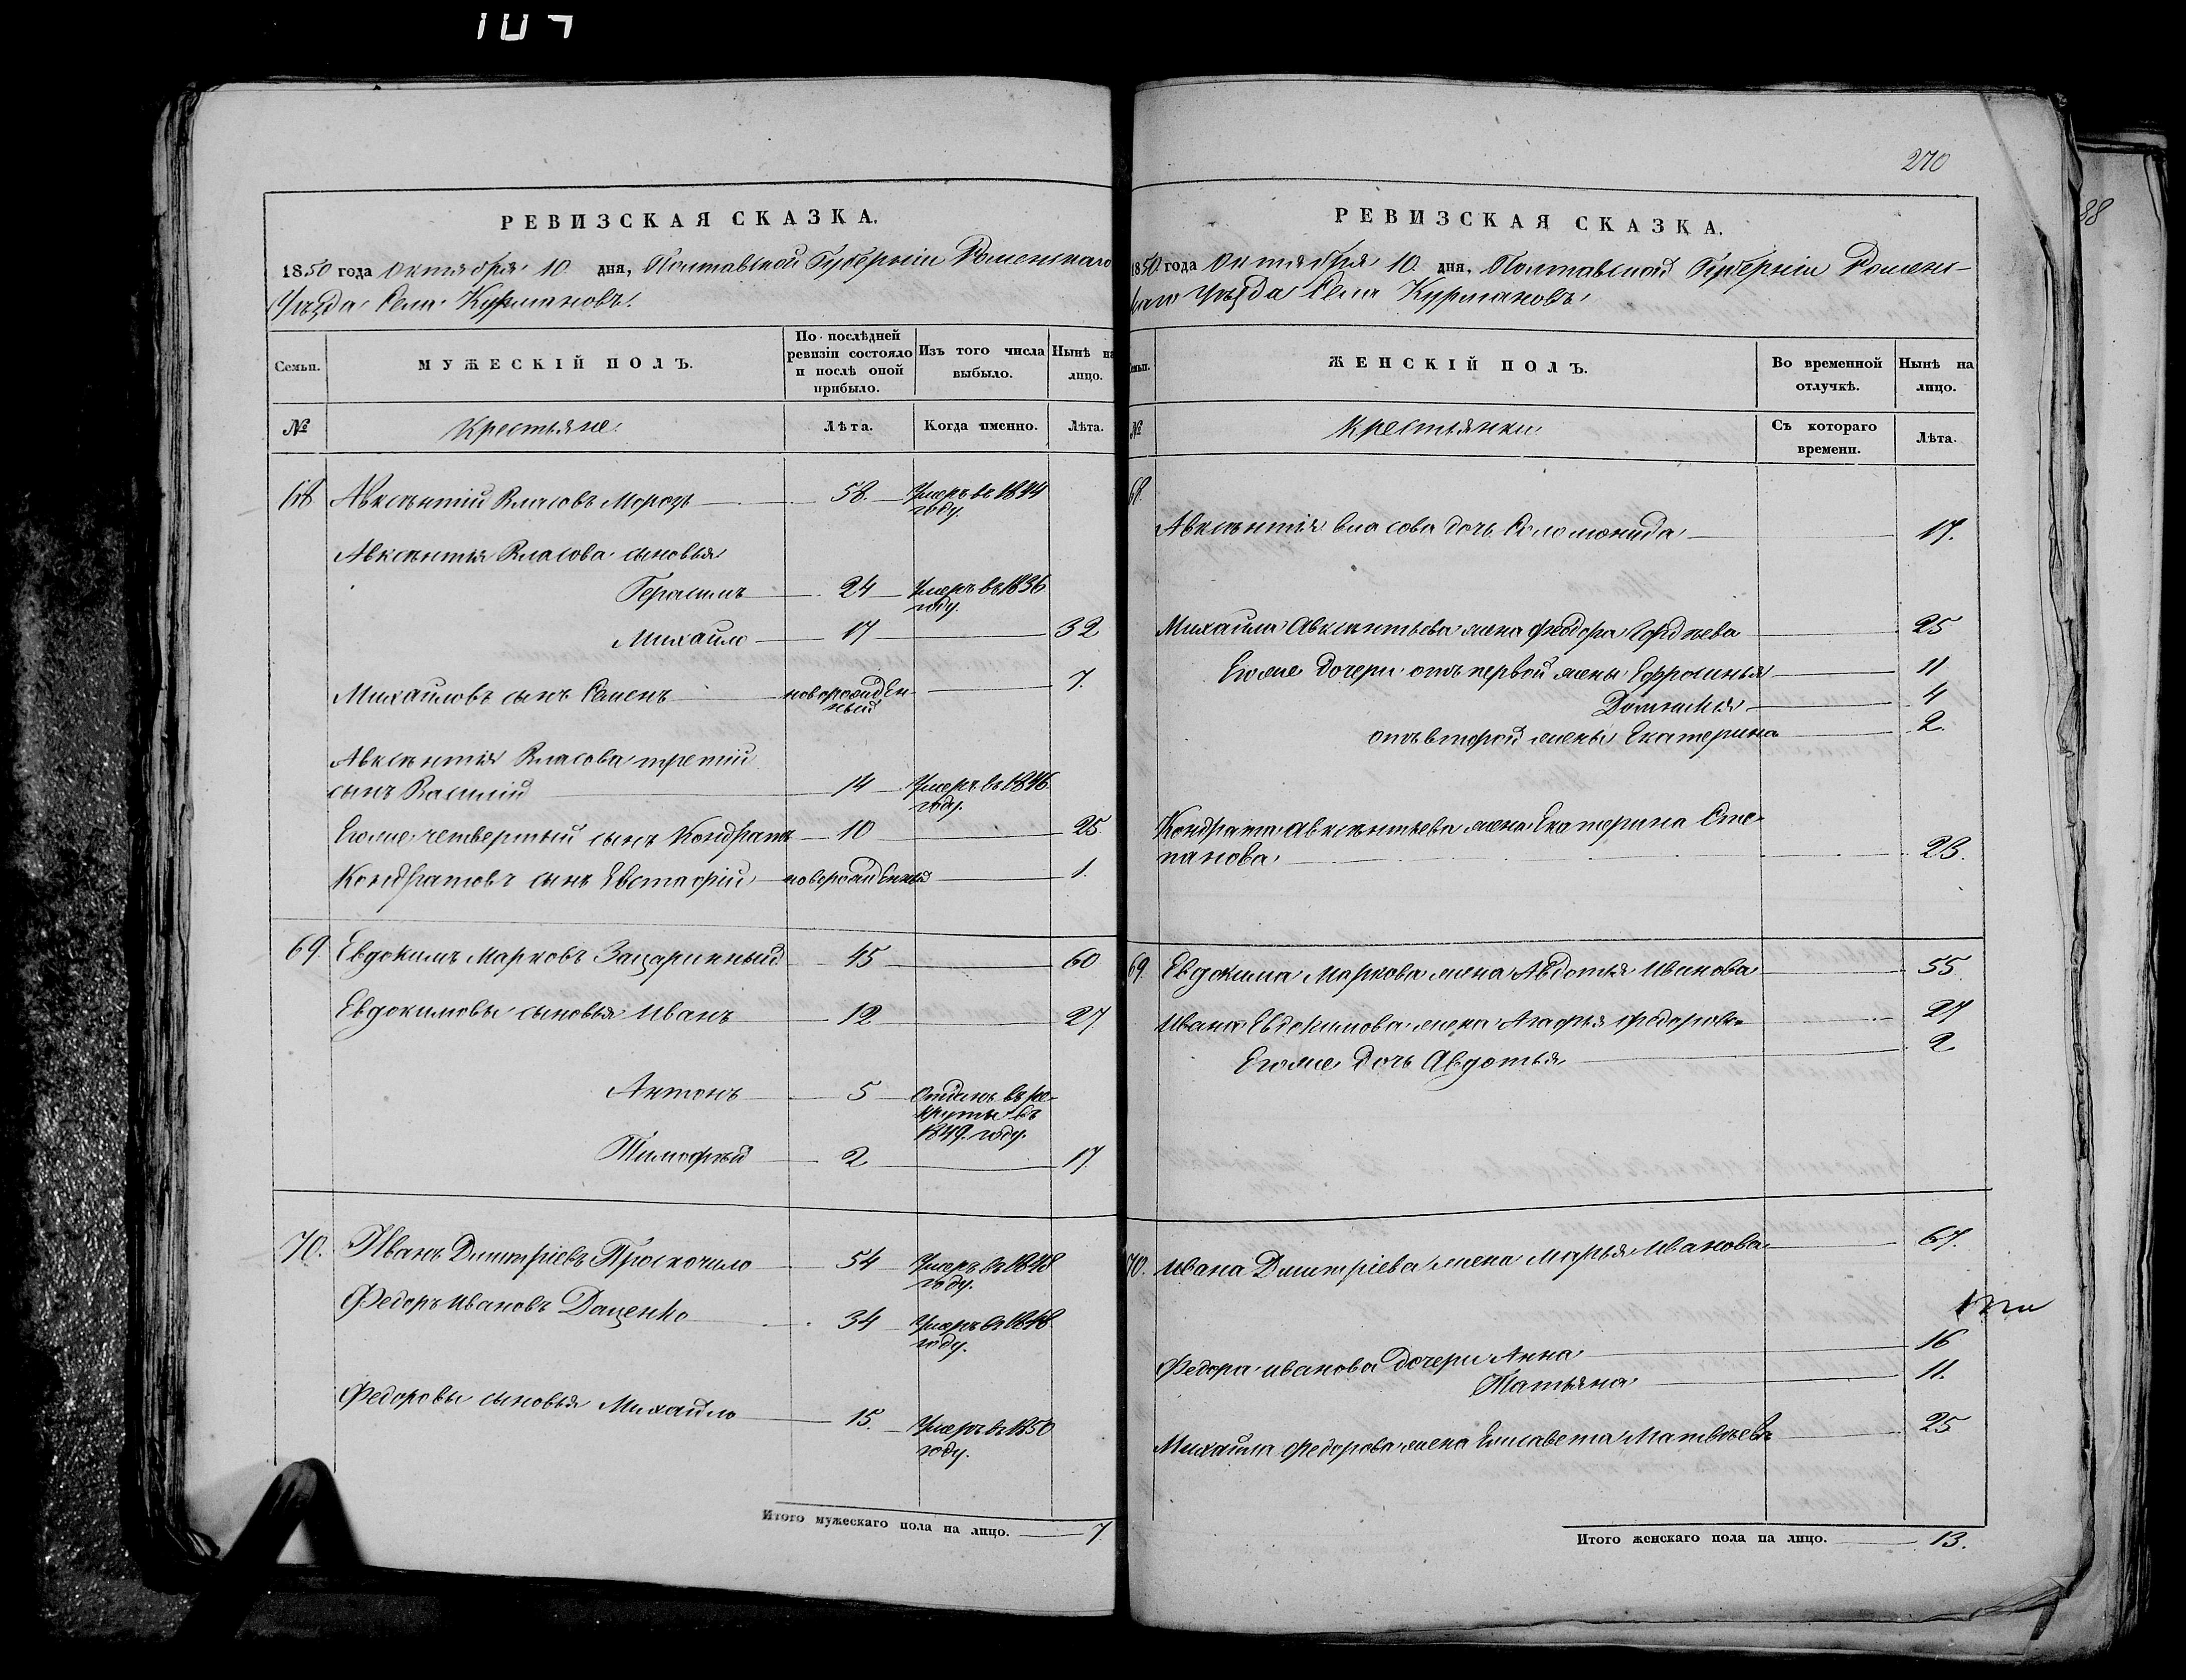 270
88
РЕВИЗСКАЯ СКАЗКА.
1850 года Октября 10 дня, Полтавской Губерніи Роменскаго
Уѣзда Села Курмановъ
Семьи.
МУЖЕСКІЙ ПОЛЪ.
По послѣдней ревизіи состояло и послѣ оной прибыло.
Изъ того числа выбыло.
Нынѣ на лицо.
№
Крестьяне
Лѣта.
Когда именно.
Лѣта.
68 Авксентий Власовъ Морозъ 58 Умеръ въ 1844
году.
Авксентия Власова сыновья
Герасимъ 24 Умеръ въ 1836
году.
Михайло 17 32
Михайловъ сынъ Семенъ новорожден- 7.
ный
Авксентия Власова третий
сынъ Василий 14 Умеръ въ 1846
году.
Егоже четвертый сынъ Кондратъ 10 25
Кондратовъ сынъ Евстафий новорожденный 1.
69. Евдокимъ Марковъ Зацаринный 45 60
Евдокимовы сыновья Иванъ 12 27
Антонъ 5 Отданъ въ ре-
круты въ
1849. году.
Тимофей 2 17.
70. Иванъ Дмитріевъ Проскочило 54 Умеръ въ 1848
году.
Федоръ Ивановъ Даценко 34 Умеръ въ 1848
году.
Федоровы сыновья Михайло 15. Умеръ въ 1850
году.
Итого мужескаго пола на лицо. 7
РЕВИЗСКАЯ СКАЗКА.
1850 года Октября 10 дня, Полтавской Губерніи Ромен-
скаго Уѣзда Села Курмановъ
Семьи.
ЖЕНСКІЙ ПОЛЪ.
Во временной отлучкѣ.
Нынѣ на лицо.
№
Крестьянки
Съ котораго времени.
Лѣта.
68.
Авксентия Власова дочь Соломонида 17.
Михайла Авксентьева жена Феодора Гордѣева 25
Егоже дочери отъ первой жены Ефросинья 11
Домникия 4
отъ второй жены Екатерина 2.
Кондрата Авксентьева жена Екатерина Сте-
панова 23.
69. Евдокима Маркова жена Авдотья Иванова 55.
Ивана Евдокимова жена Агафья Федорова 27
Егоже дочь Авдотья 2
70. Ивана Дмитріева жена Марья Иванова 67.
Федора Иванова дочери Анна 16
Татьяна 11.
Михайла Федорова жена Елисавета Матвѣева 25
Итого женскаго пола на лицо. 13.